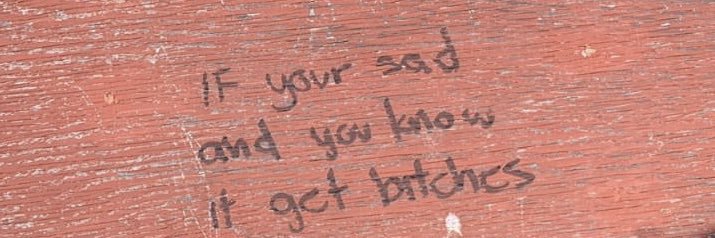 IF your sad
and you know
it get bitches